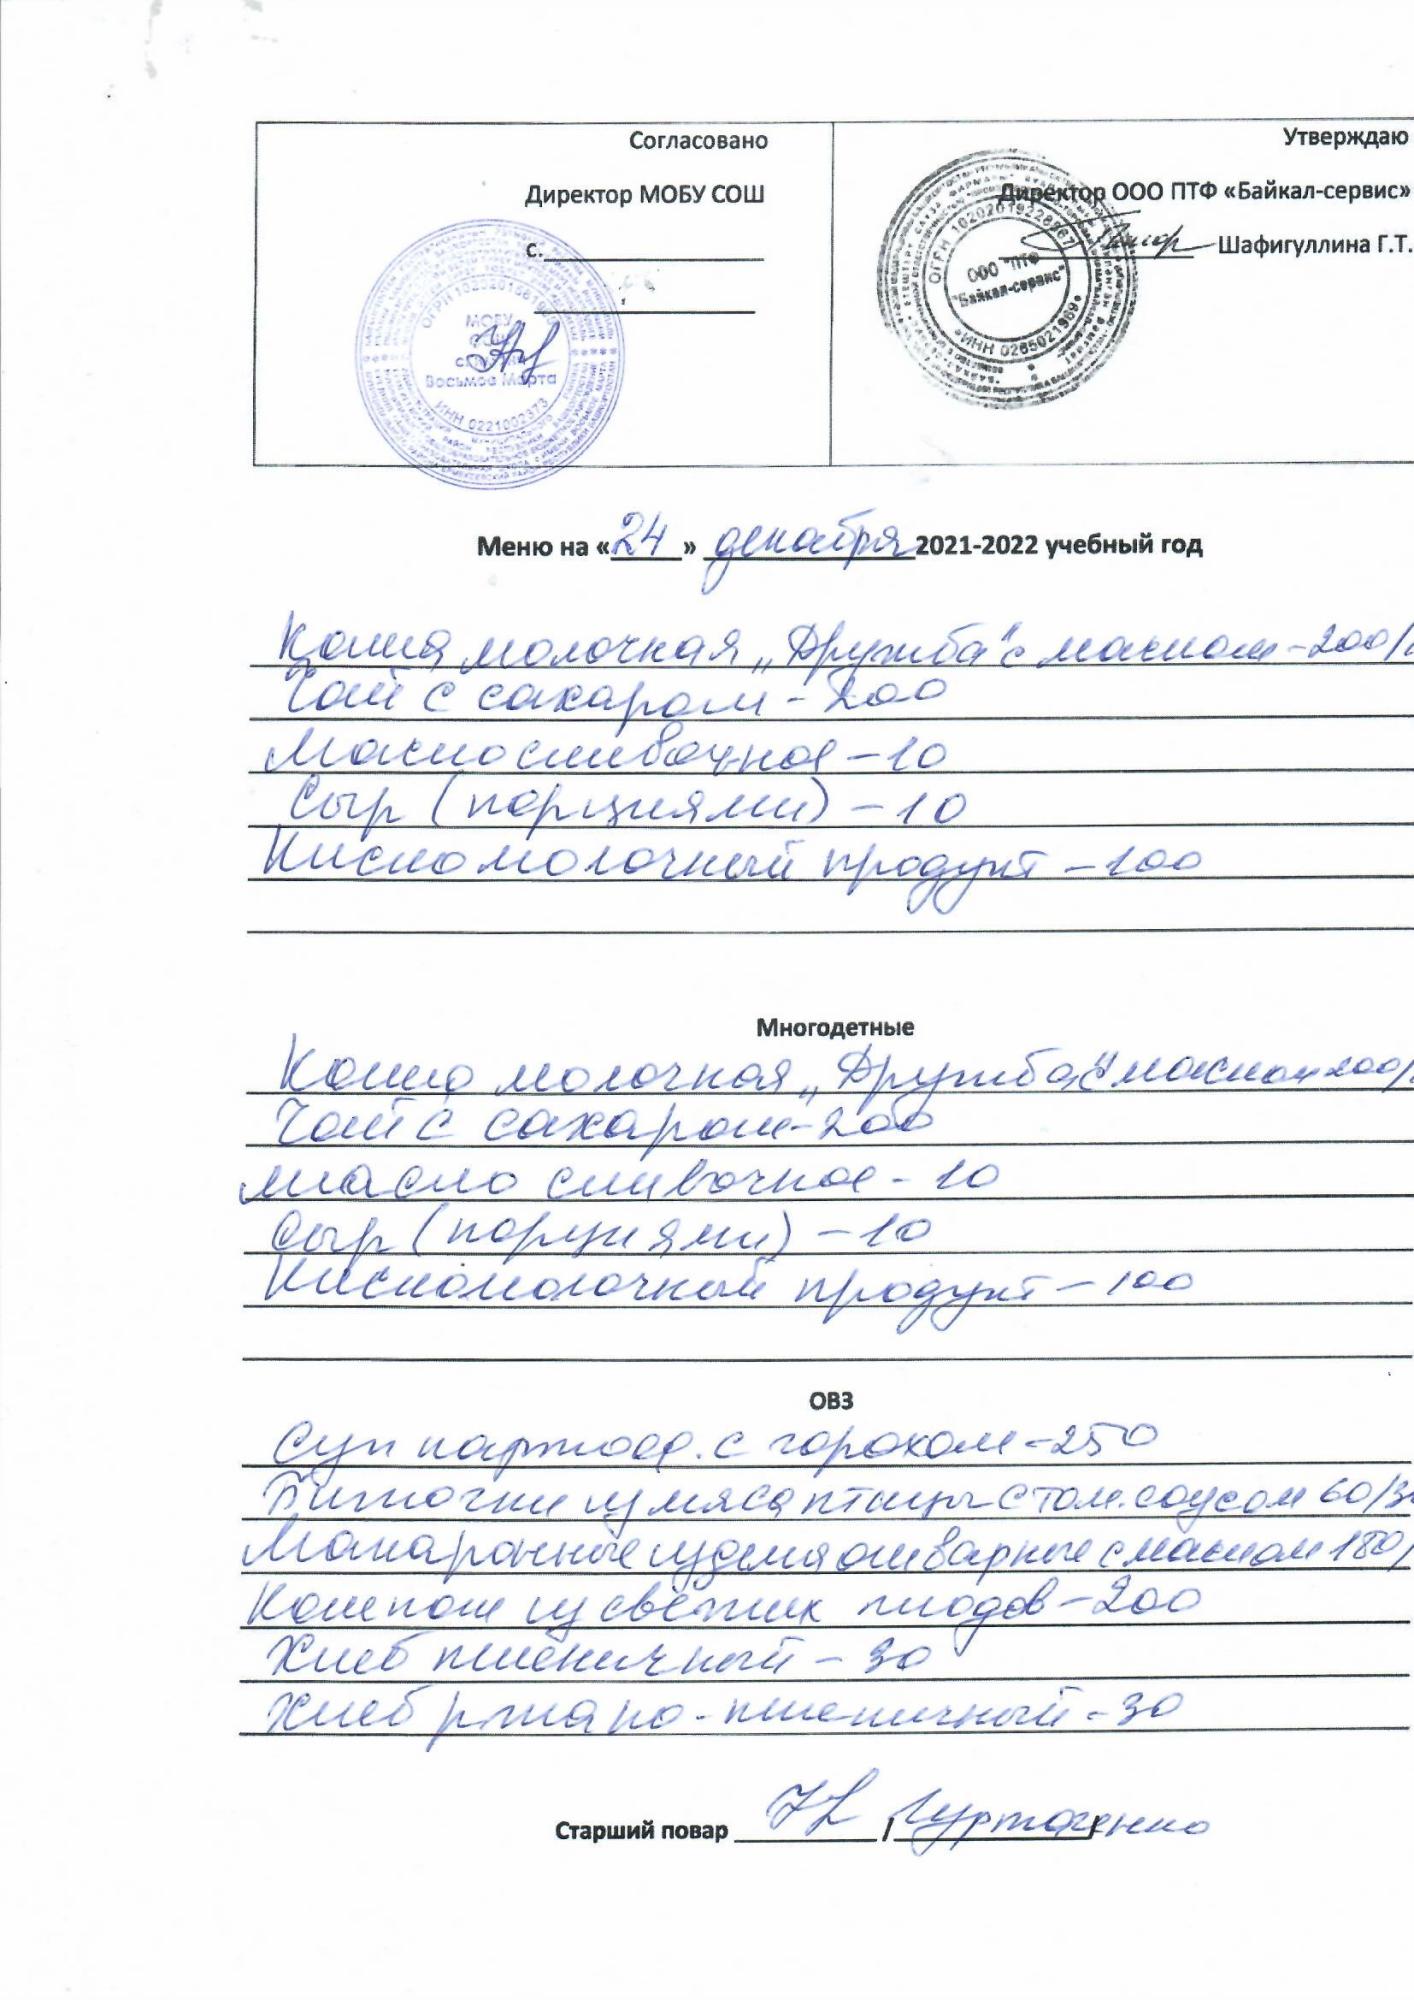 Согласовано
Директор МОБУ СОШ
с.
МОБУ
СОШ
Восьмое Марта
ИНН 0221002373
Утверждаю
Директор ООО ПТФ «Байкал-сервис»
Шафигуллина Г.Т.
ОГРН 1020201922886
ООО "ПТФ
"Байкал-сервис"
ИНН 0265021969
Меню на «24» декабря 2021-2022 учебный год
Каша молочная „Дружба" с маслом - 200/
Чай с сахаром - 200
Масло сливочное - 10
Сыр (порциями) - 10
Кисломолочный продукт - 100
Многодетные
Каша молочная „Дружба" с маслом 200/
Чай с сахаром - 200
масло сливочное - 10
Сыр (порциями) - 10
Кисломолочный продукт - 100
ОВЗ
Суп картоф. с горохом - 250
Биточки из мяса птицы с том. соусом 60/30
Макаронные изделия отварные с маслом 180/
Компот из свежих плодов - 200
Хлеб пшеничный - 30
Хлеб ржано - пшеничный - 30
Старший повар /